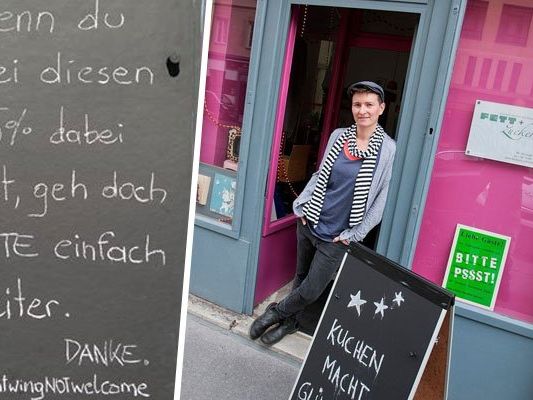 enn du
ei diesen
5% dabei
t, geh doch
TE einfach
iter.
DANKE.
twingNOTwelcome
FETT+
Zucker
Liebe Gäste!
BITTE
PSSST!
KUCHEN
MACHT